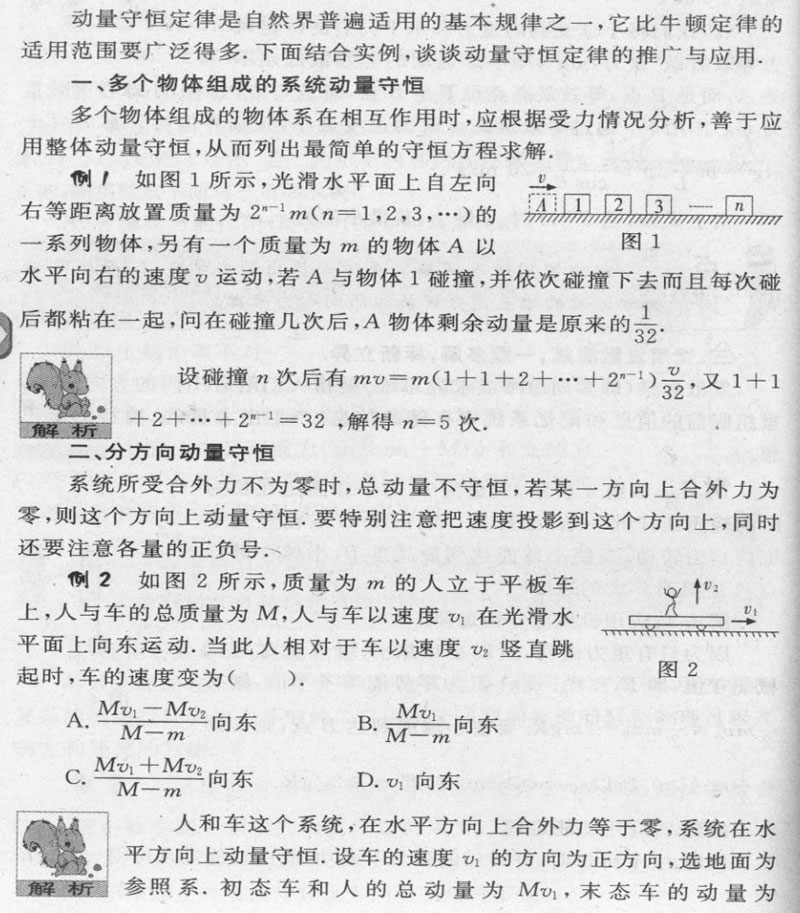 动量守恒定律是自然界普遍适用的基本规律之一,它比牛顿定律的
适用范围要广泛得多.下面结合实例,谈谈动量守恒定律的推广与应用.
一、多个物体组成的系统动量守恒
多个物体组成的物体系在相互作用时,应根据受力情况分析,善于应
用整体动量守恒,从而列出最简单的守恒方程求解.
例1 如图1所示,光滑水平面上自左向
右等距离放置质量为 2ⁿ⁻¹m(n=1,2,3,…)的
一系列物体,另有一个质量为 m 的物体 A 以
水平向右的速度 v 运动,若 A 与物体1碰撞,并依次碰撞下去而且每次碰
后都粘在一起,问在碰撞几次后,A 物体剩余动量是原来的 1/32.
v
A 1 2 3 …… n
图1
解析
设碰撞 n 次后有 mv=m(1+1+2+…+2ⁿ⁻¹) v/32,又 1+1
+2+…+2ⁿ⁻¹=32,解得 n=5 次.
二、分方向动量守恒
系统所受合外力不为零时,总动量不守恒,若某一方向上合外力为
零,则这个方向上动量守恒.要特别注意把速度投影到这个方向上,同时
还要注意各量的正负号.
例2 如图2所示,质量为 m 的人立于平板车
上,人与车的总质量为 M,人与车以速度 v₁ 在光滑水
平面上向东运动.当此人相对于车以速度 v₂ 竖直跳
起时,车的速度变为( ).
v₂
v₁
图2
A. (Mv₁-Mv₂)/(M-m) 向东 B. Mv₁/(M-m) 向东
C. (Mv₁+Mv₂)/(M-m) 向东 D. v₁ 向东
解析
人和车这个系统,在水平方向上合外力等于零,系统在水
平方向上动量守恒.设车的速度 v₁ 的方向为正方向,选地面为
参照系.初态车和人的总动量为 Mv₁,末态车的动量为